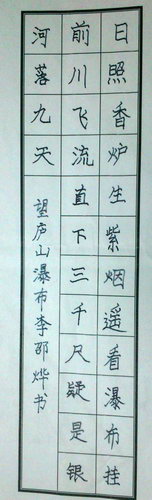 日照香炉生紫烟遥看瀑布挂
前川飞流直下三千尺疑是银
河落九天
望庐山瀑布李邵烨书